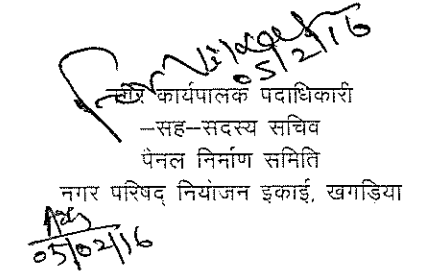 05/2/16
नगर कार्यपालक पदाधिकारी
–सह–सदस्य सचिव
पैनल निर्माण समिति
नगर परिषद् नियोजन इकाई, खगड़िया
05/02/16